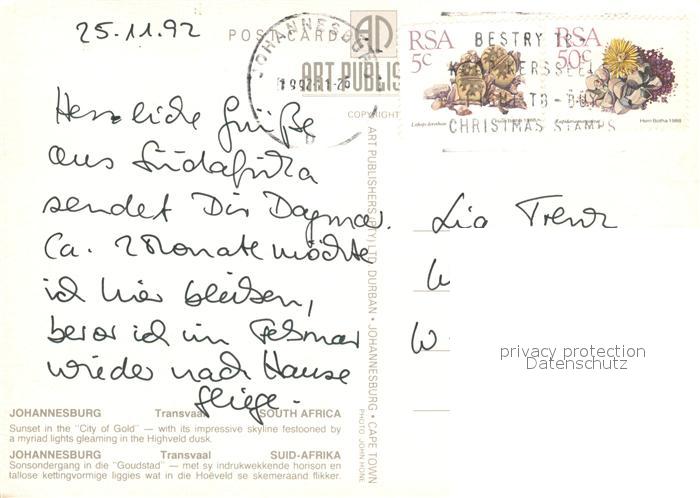 25.11.92
POSTCARD
JOHANNESBURG
1992-11-26
ART PUBLIS
COPYRIGHT
RSA
5c
RSA
50c
BESTRY
CHRISTMAS STAMPS
Hein Botha 1988
Hein Botha 1988
Herzliche Grüße
aus Südafrika
sendet Dir Dagmar.
Ca. 2 Monate möchte
ich hier bleiben,
bevor ich im Februar
wieder nach Hause
fliege.
ART PUBLISHERS (PTY) LTD. DURBAN • JOHANNESBURG • CAPE TOWN
PHOTO JOHN HONE
Lia
W
privacy protection
Datenschutz
JOHANNESBURG Transvaal SOUTH AFRICA
Sunset in the "City of Gold" — with its impressive skyline festooned by
a myriad lights gleaming in the Highveld dusk.
JOHANNESBURG Transvaal SUID-AFRIKA
Sonsondergang in die "Goudstad" — met sy indrukwekkende horison en
tallose kettingvormige liggies wat in die Hoëveld se skemeraand flikker.